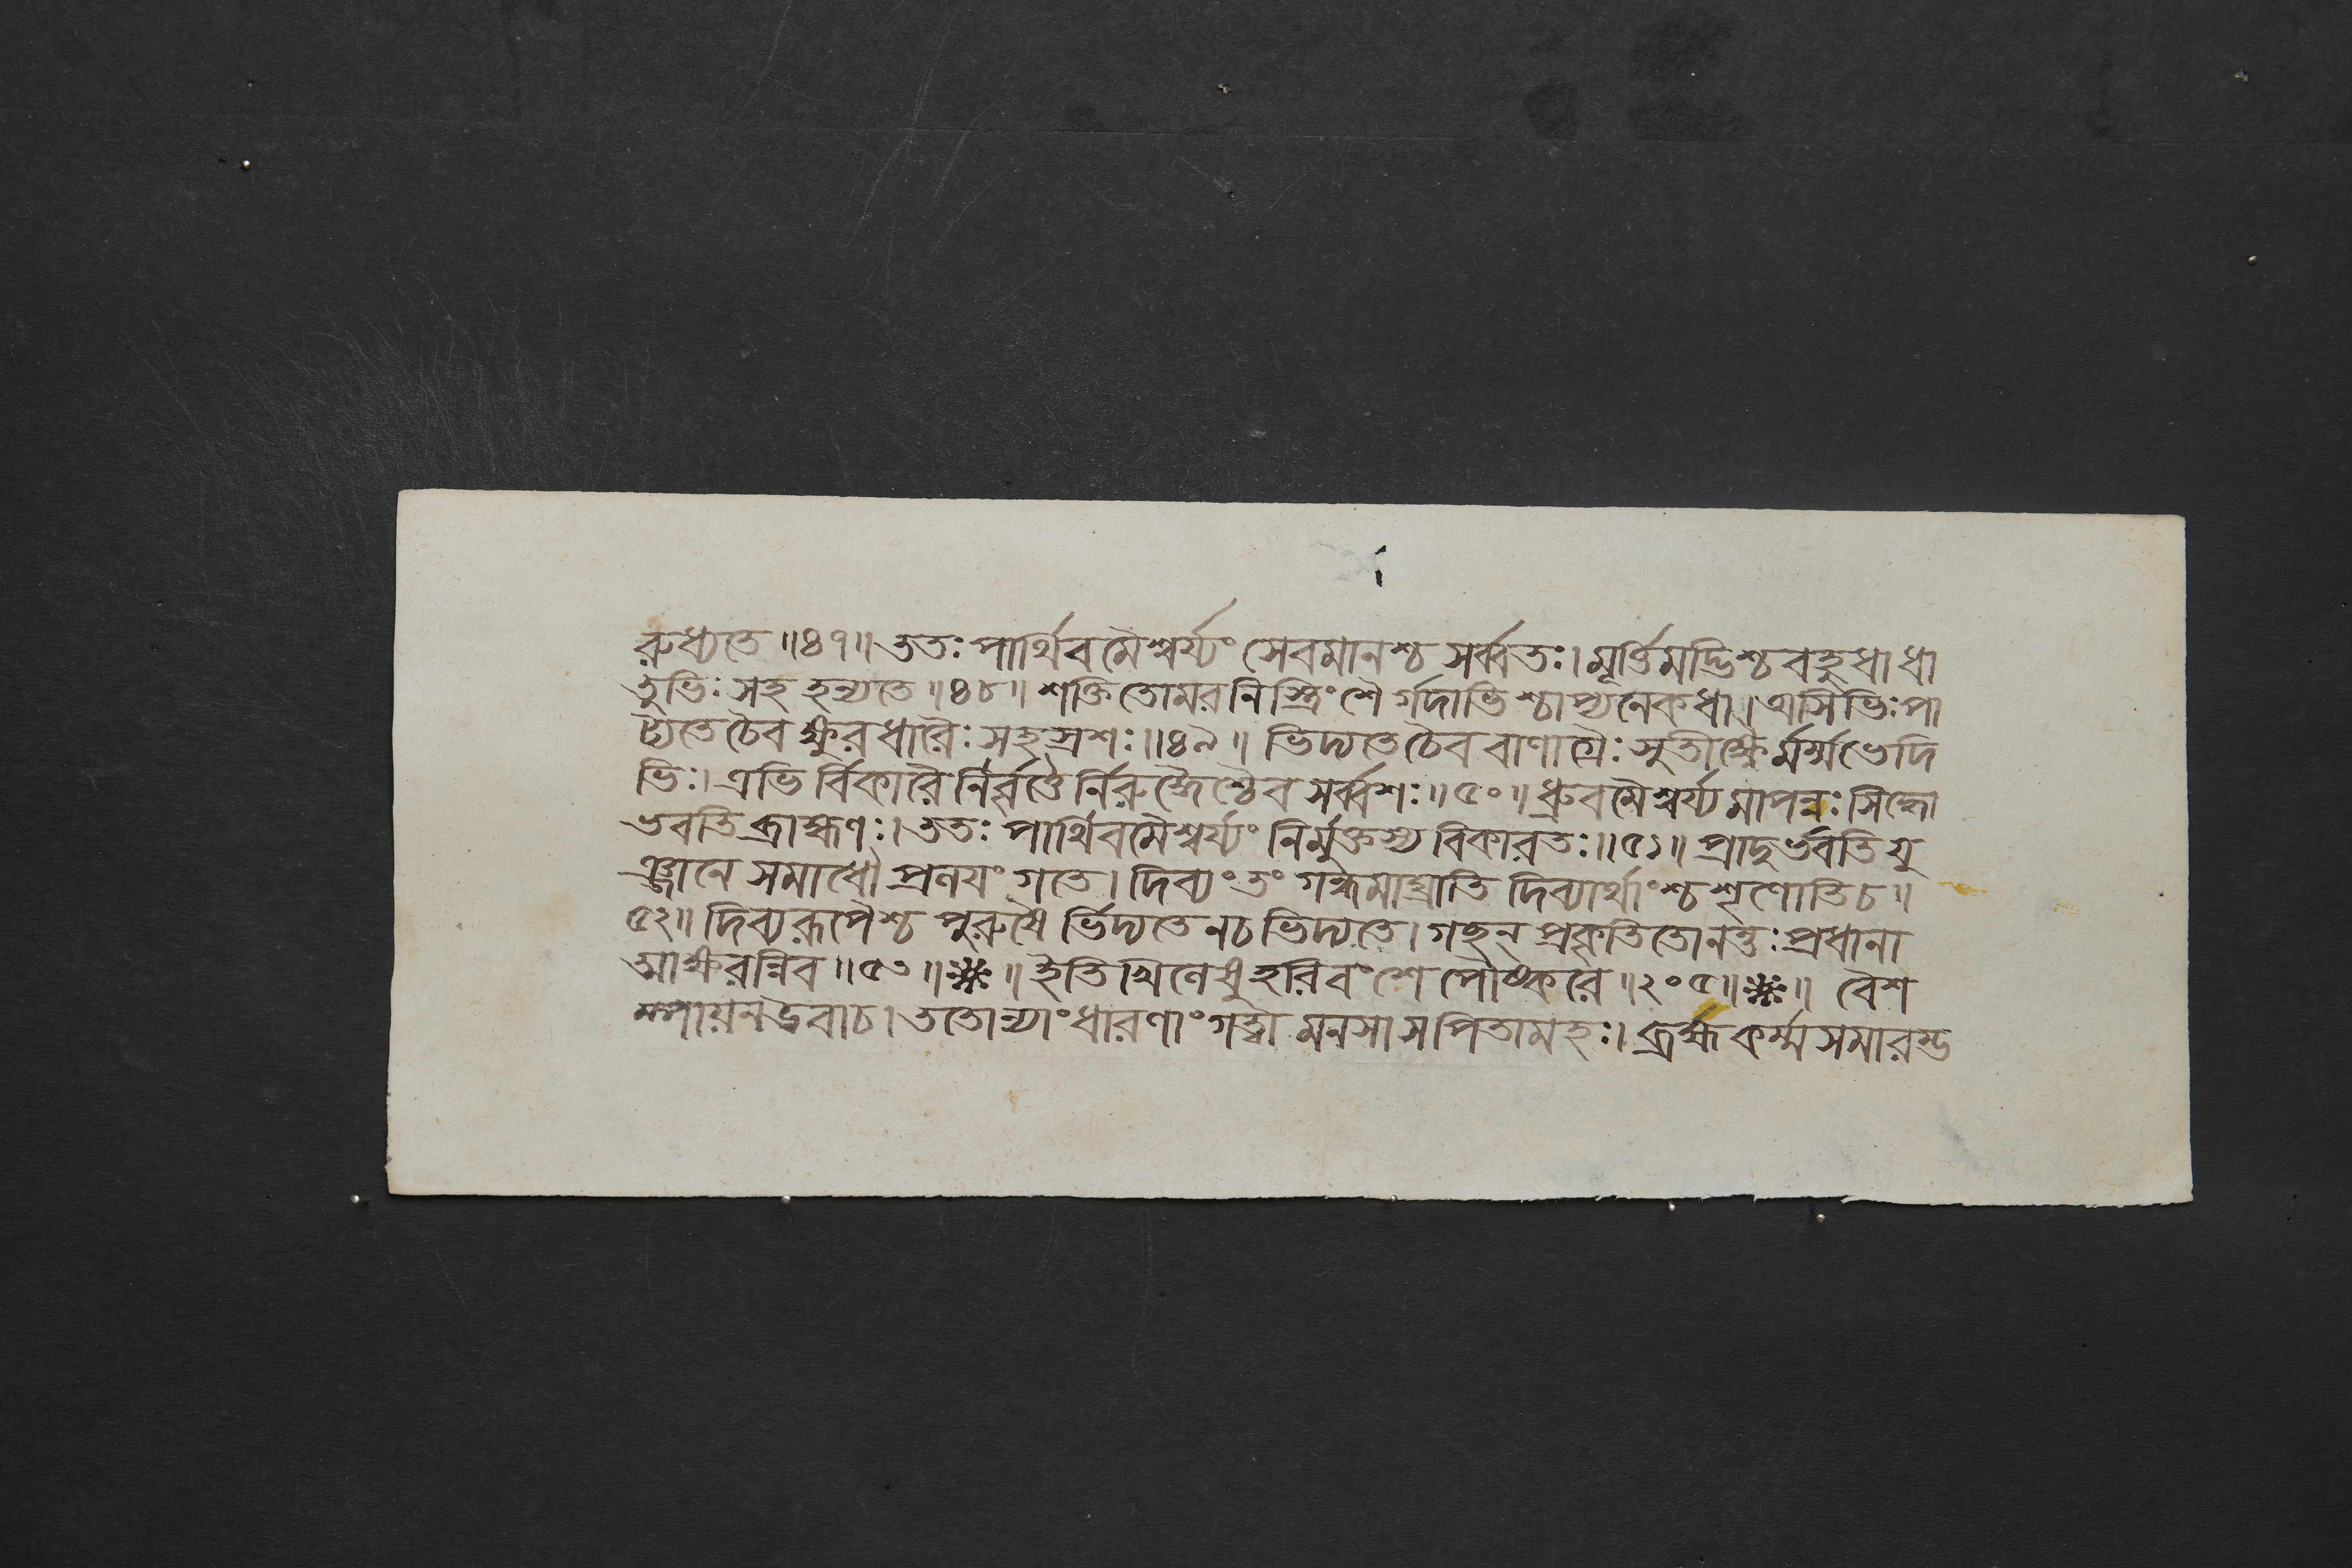 রুধ্যতে ॥৪৭॥ ততঃ পার্থিবমৈশ্বর্য্যং সেবমানশ্চ সর্ব্বতঃ। মূর্ত্তিমদ্ভিশ্চ বহুধা ধা
তুভিঃ সহ হন্যতে ॥৪৮॥ শক্তিতোমরনিস্ত্রিংশৈর্গদাভিশ্চাপ্যনেকধা। অসিভিঃ পা
ট্যতে চৈব ক্ষুরধারৈঃ সহস্রশঃ ॥৪৯॥ ভিদ্যতে চৈব বাণাগ্রৈঃ সুতীক্ষ্ণৈর্মর্ম্মভেদি
ভিঃ। এভির্বিকারৈর্নির্বৃত্তৈর্নিরুদ্ধৈশ্চৈব সর্ব্বশঃ ॥৫০॥ ধ্রুবমৈশ্বর্য্যমাপন্নঃ সিদ্ধো
ভবতি ব্রাহ্মণঃ। ততঃ পার্থিবমৈশ্বর্য্যং নির্মুক্তস্য বিকারতঃ ॥৫১॥ প্রাদুর্ভবতি যু
ঞ্জানে সমাধৌ প্রণয়ং গতে। দিব্যং তং গন্ধমাঘ্রাতি দিব্যার্থাংশ্চ শৃণোতি চ ॥
৫২॥ দিব্যরূপৈশ্চ পুরুষৈর্ভিদ্যতে ন চ ভিদ্যতে। গছন্ প্রকৃতিতোনন্তঃ প্রধানা
ত্মাক্ষরন্নিব ॥৫৩॥❋॥ ইতি খিলেষু হরিবংশে পৌষ্করে ॥২০৫॥❋॥ বৈশ
ম্পায়ন উবাচ। ততোন্যাং ধারণাং গত্বা মনসা স পিতামহঃ। ব্রহ্মকর্ম্ম সমারম্ভ